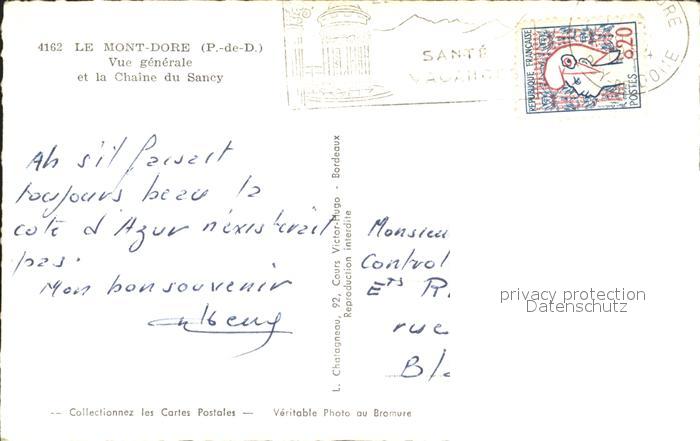 4162 LE MONT-DORE (P.-de-D.)
Vue générale
et la Chaîne du Sancy
SANTÉ
VACANCES
RÉPUBLIQUE FRANÇAISE
0,20
POSTES
Ah s'il faisait
toujours beau la
cote d'Azur n'existerait
pas.
Mon bon souvenir
L. Chatagneau, 92, Cours Victor-Hugo - Bordeaux
Reproduction interdite
Monsieu
Control
Ets R.
rue
privacy protection
Datenschutz
-- Collectionnez les Cartes Postales — Véritable Photo au Bromure